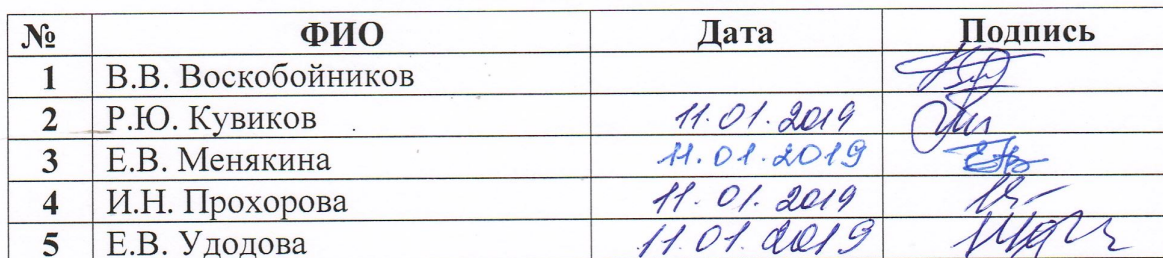 № ФИО Дата Подпись
1 В.В. Воскобойников
2 Р.Ю. Кувиков 11.01.2019
3 Е.В. Менякина 11.01.2019
4 И.Н. Прохорова 11.01.2019
5 Е.В. Удодова 11.01.2019